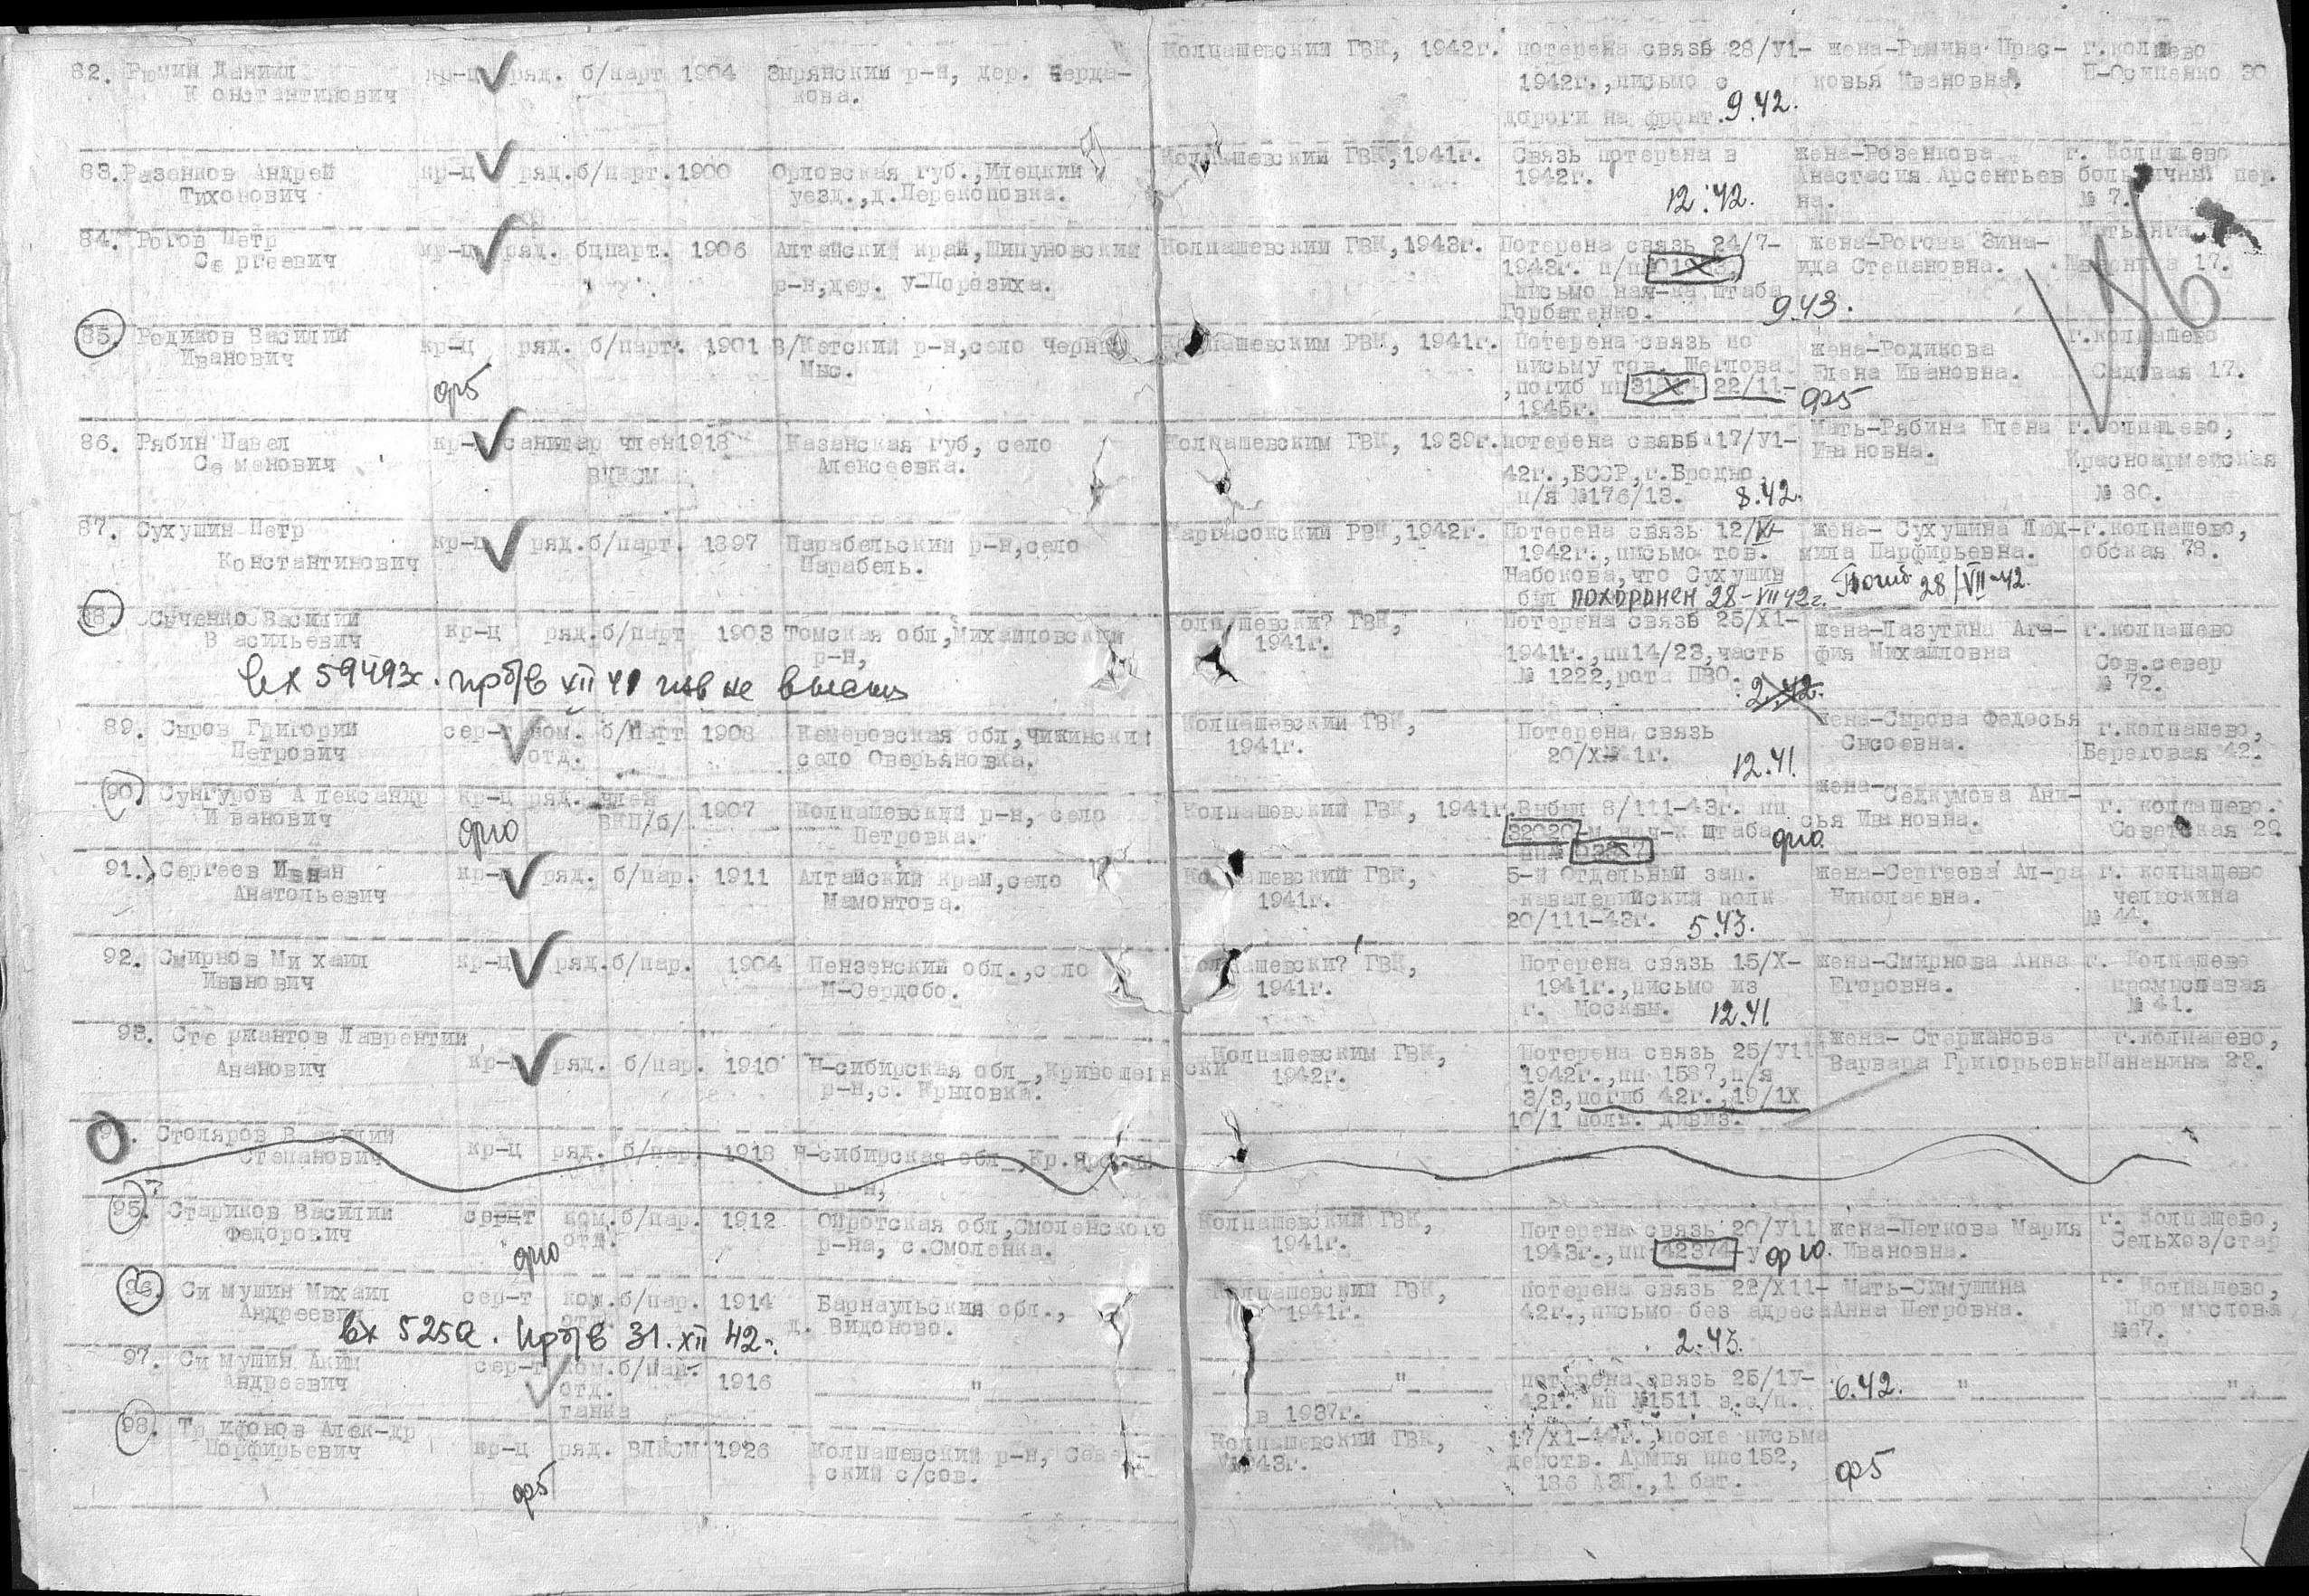 82. Рюмин Даниил кр-ц ряд. б/парт 1904 Зырянский р-н, дер. Черда- Колпашевский ГВК, 1942г. потеряна связь 28/У1- жена-Рюмина Прас- г.колпашево
Константинович кова. 1942г.,письмо с ковья Ивановна. 30
дороги на фронт. 9.42.
83. Разенков Андрей кр-ц ряд. б/парт. 1900 Орловская губ., уезд.,д.Перекоповка. Колпашевский ГВК,1941г. Связь потеряна в жена-Розенкова г. Колпашево
Тихонович 1942г. 12.42. Анастасия Арсентьев больничный пер.
на. № 7.
84. Рогов Петр кр-ц ряд. бцпарт. 1906 Алтайский край,Шипуновский Колпашевский ГВК,1943г. Потеряна связь 24/7- жена-Рогова Зина-
Сергеевич р-н,дер. У-Порозиха. 1943г. п/п ида Степановна. 17.
письмо нач-ка штаба
Горбатенко. 9.43.
85. Родиков Василий кр-ц ряд. б/парт. 1901 В/Кетский р-н,село Черный Колпашевским РВК, 1941г. Потеряна связь по жена-Родикова г.колпашево
Иванович Мыс. письму тов. Щеглова Елена Ивановна. Садовая 17.
ф5 ,погиб пп 22/11- ф5
1945г.
86. Рябин Павел кр-ц санитар член 1918 Казанская губ, село Колпашевским ГВК, 1939г. потеряна связь 17/У1- Мать-Рябина Елена г.колпашево,
Семенович ВЛКСМ Алексеевка. 42г.,БССР,г. Ивановна. Красноармейская
п/я №176/13. 8.42. № 80.
87. Сухушин Петр кр-ц ряд. б/парт. 1897 Парабельский р-н,село Каргасокский РВК,1942г. Потеряна связь 12/VI- жена- Сухушина Люд- г.колпашево,
Константинович Парабель. 1942г.,письмо тов. мила Парфирьевна. обская 78.
Набокова,что Сухушин Погиб 28/VII-42.
был похоронен 28-VII 42г.
88. Василий кр-ц ряд. б/парт 1903 Томская обл,Михайловский Колпашевски? ГВК, Потеряна связь 25/Х1- жена-Лазутина Ага- г.колпашево
Васильевич р-н, 1941г. 1941г.,пп14/23,часть фия Михайловна Сов.север
вх 59493с. пр б/в XII 41 изв не № 1222,рота ПВО. 2.42. № 72.
89. Сыров Григорий сер-т ком. б/парт 1908 Кемеровская обл, Колпашевский ГВК, Потеряна связь жена-Сырова Федосья г.колпашево,
Петрович отд. село Оверьяновка. 1941г. 20/Х 12.41. Сысоевна. Береговая 42.
90. Сунгуров Александр кр-ц ряд. член 1907 Колпашевский р-н, село Колпашевский ГВК, 1941г. Выбыл 8/111-43г. пп жена г. колпашево.
Иванович ВКП/б/ Петровка. 32020 нач-к штаба сья Ивановна. Советская 29
фю фю.
91. Сергеев Иван кр-ц ряд. б/пар. 1911 Алтайский край,село Колпашевский ГВК, 5-й Отдельный зап. жена-Сергеева Ал-ра г. колпашево
Анатольевич Мамонтова. 1941г. кавалерийский полк Николаевна. челюскина
20/111-43г. 5.43. № 44.
92. Смирнов Михаил кр-ц ряд. б/пар. 1904 Пензенский обл.,село Колпашевски? ГВК, Потеряна связь 15/Х- жена-Смирнова Анна г. Колпашево
Иванович М-Сердобо. 1941г. 1941г.,письмо из Егоровна. промысловая
г. Москвы. 12.41 № 41.
93. Стержантов Лаврентий кр-ц ряд. б/пар. 1910 Н-сибирская обл.,Кривошеинский Колпашевским ГВК, Потеряна связь 25/У11 жена- Стержанова г.колпашево,
Ананович р-н,с. Крыловка. 1942г. 1942г.,пп 1587,п/я Варвара Григорьевна Пананина 22.
3/3,погиб 42г.,19/1Х
10/1 полк. дивиз.
Столяров кр-ц ряд. б/пар. 1918 Н-сибирская обл.,
Степанович р-н,
95. Стариков Василий сер-т ком. б/пар. 1912 Ойротская обл,Смоленского Колпашевский ГВК, Потеряна связь 20/У11 жена-Петкова Мария г. Колпашево,
Федорович отд. р-на, с.Смоленка. 1941г. 1943г.,пп 42374-у фю. Ивановна. Сельхоз/стар
фю
96. Симушин Михаил сер-т ком. б/пар. 1914 Барнаульския обл., Колпашевский ГВК, потеряна связь 22/Х11- Мать-Симушина г. Колпашево,
Андреевич отд. д. Видоново. 1941г. 42г.,письмо без адреса Анна Петровна. Промыслова
вх 525а. пр б/в 31.XII 42г. 2.43. №67.
97. Симушин Аким сер-т ком. б/пар. 1916 " " потеряна связь 25/1У- 6.42. " "
Андреевич отд. в 1937г. 42г. пп №1511 з.с/п.
танка
98. Трифонов Алек-др кр-ц ряд. ВЛКСМ 1926 Колпашевский р-н, Колпашевский ГВК, 17/Х1-44г.,после письма
Порфирьевич ский с/сов. 1943г. действ. Армия ппс152, ф5
ф5 186 АЗП.,1 бат.